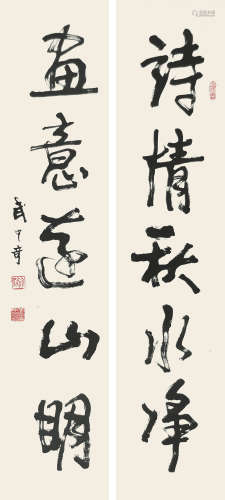 詩情秋水净
畫意遠山明
武中奇